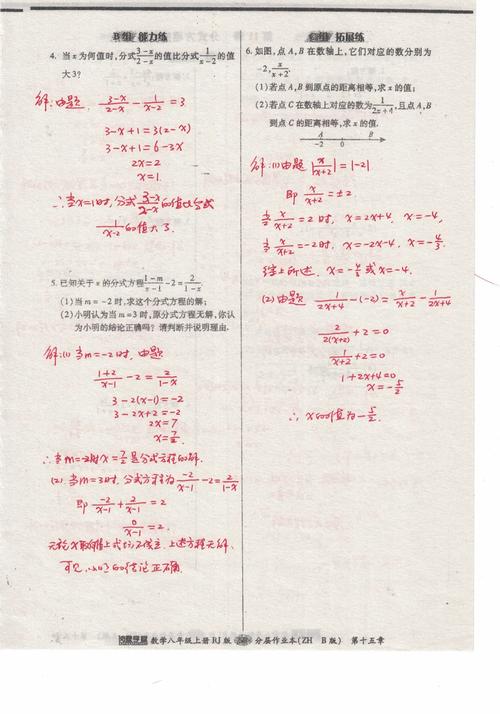 B组 能力练
4. 当x为何值时,分式\frac{3-x}{2-x}的值比分式\frac{1}{x-2}的值
大3?
解:由题 \frac{3-x}{2-x} - \frac{1}{x-2} = 3
3-x+1=3(2-x)
3-x+1=6-3x
2x=2
x=1.
∴当x=1时,分式\frac{3-x}{2-x}的值比分式
\frac{1}{x-2}的值大3.
5. 已知关于x的分式方程\frac{1-m}{x-1}-2=\frac{2}{1-x}
(1)当m=-2时,求这个分式方程的解;
(2)小明认为当m=3时,原分式方程无解,你认
为小明的结论正确吗?请判断并说明理由.
解:(1)当m=-2时,由题
\frac{1+2}{x-1}-2=\frac{2}{1-x}
3-2(x-1)=-2
3-2x+2=-2
2x=7
x=\frac{7}{2}
∴当m=-2时x=\frac{7}{2}是分式方程的解.
(2)当m=3时,分式方程为\frac{-2}{x-1}-2=\frac{2}{1-x}
即 \frac{-2}{x-1}+\frac{2}{x-1}=2
\frac{0}{x-1}=2.
无论x取何值上式均不成立.上述方程无解.
可见,小明的结论正确.
C组 拓展练
6. 如图,点A,B在数轴上,它们对应的数分别为
-2,\frac{x}{x+2}.
(1)若点A,B到原点的距离相等,求x的值;
(2)若点C在数轴上对应的数为\frac{1}{2x+4},且点A,B
到点C的距离相等,求x的值.
A B
-2 0
解:(1)由题 |\frac{x}{x+2}|=|-2|
即 \frac{x}{x+2}=±2
当\frac{x}{x+2}=2时, x=2x+4, x=-4,
当\frac{x}{x+2}=-2时, x=-2x-4, x=-\frac{4}{3}.
综上所述, x=-\frac{4}{3}或x=-4.
(2)由题 \frac{1}{2x+4}-(-2)=\frac{x}{x+2}-\frac{1}{2x+4}
\frac{2}{2(x+2)}+2=0
\frac{1}{x+2}+2=0
1+2x+4=0
x=-\frac{5}{2}
∴x的值为-\frac{5}{2}.
数学八年级上册RJ版 分层作业本(ZH B版) 第十五章